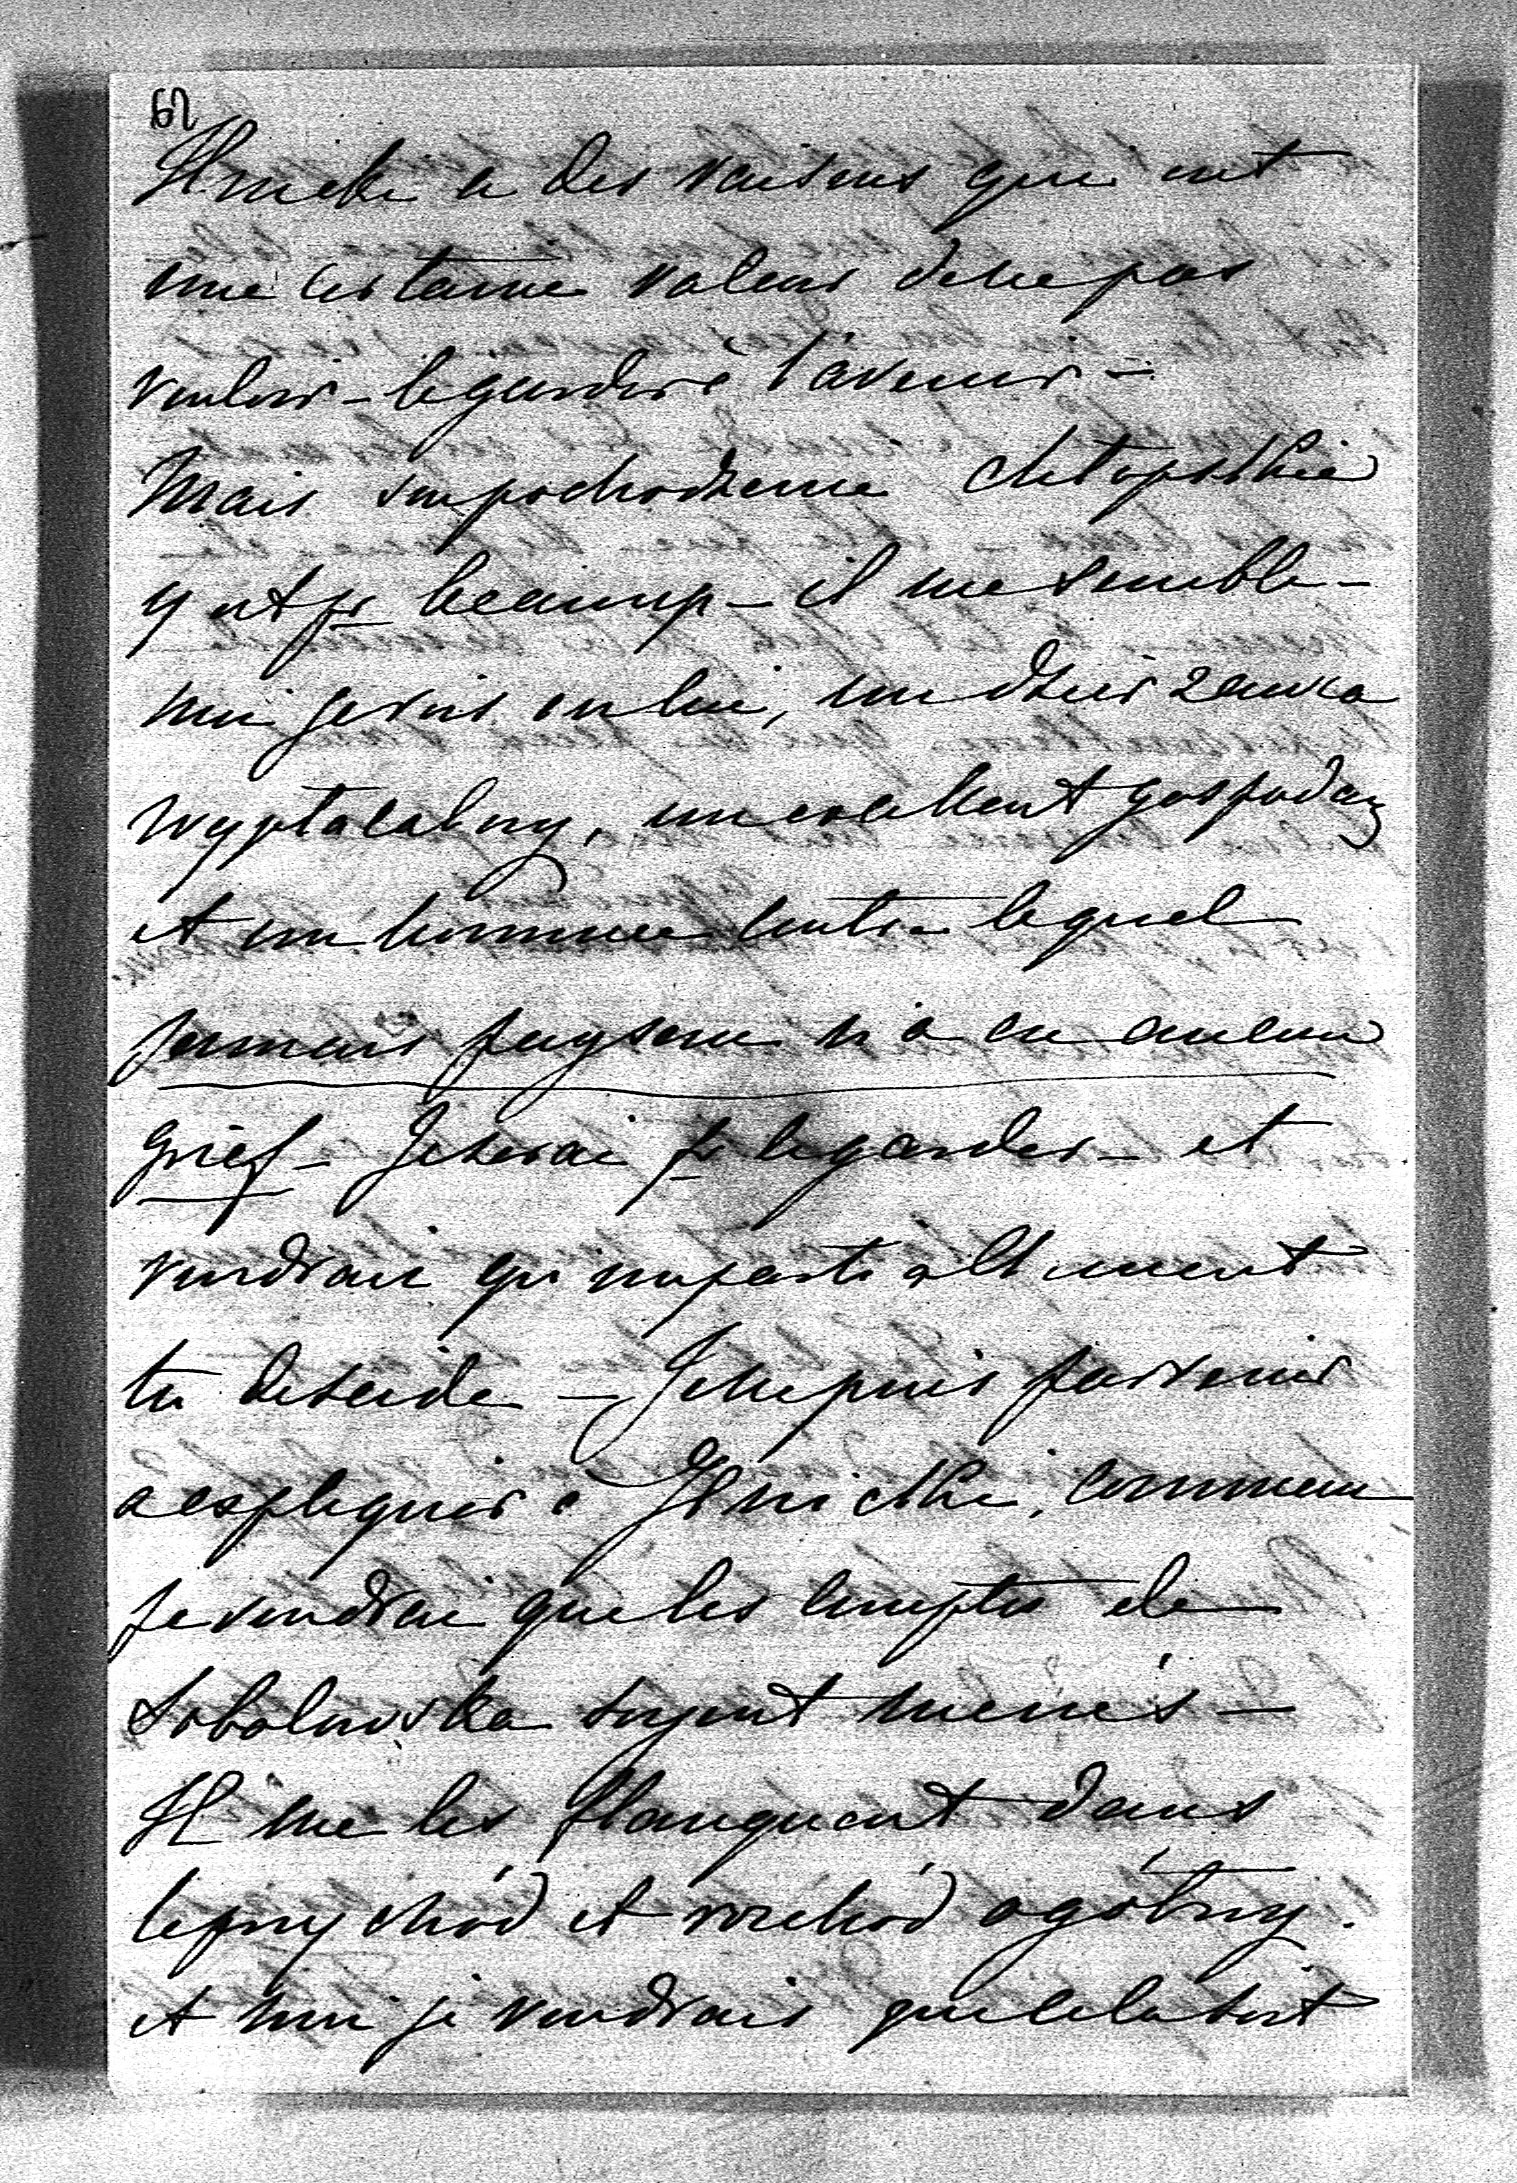 62
Ilnicki a des raisons qui ont
une certaine valeur de ne pas
vouloir - le garder à l'avenir -
Mais son pochodzenie chłopskie
y est pr beaucoup - il me semble -
moi je vois en lui, un dzierżawca
wypłacalny, un excellent gospodarz
et un homme contre lequel
jamais paysan n'a eu aucun
grief - Je serai pr le garder - et
voudrais qu'impartialement
tu deside - Je ne puis parvenir
a espliquer à Ilnicki, comment
je voudrai que les comptes de
Sobolowska soyent menés -
Il me les flanquent dans
le przychód et rozchód ogólny.
et moi je voudrais que cela soit